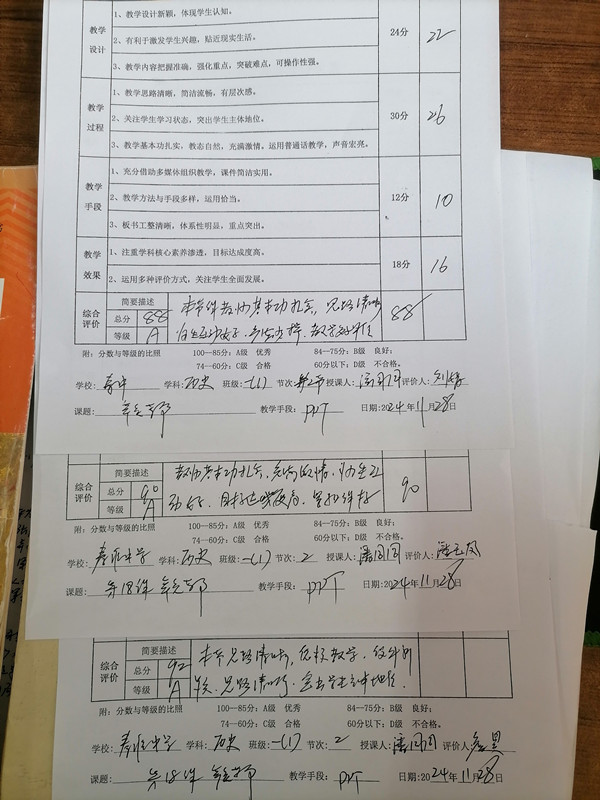 教学
设计
1、教学设计新颖，体现学生认知。
2、有利于激发学生兴趣，贴近现实生活。
3、教学内容把握准确，强化重点，突破难点，可操作性强。
24分
22
教学
过程
1、教学思路清晰，简洁流畅，有层次感。
2、关注学生学习状态，突出学生主体地位。
3、教学基本功扎实，教态自然，充满激情。运用普通话教学，声音宏亮。
30分
26
教学
手段
1、充分借助多媒体组织教学，课件简洁实用。
2、教学方法与手段多样，运用恰当。
3、板书工整清晰，体系性明显，重点突出。
12分
10
教学
效果
1、注重学科核心素养渗透，目标达成度高。
2、运用多种评价方式，关注学生全面发展。
18分
16
综合
评价
简要描述
总分 88
等级 A
本节课教师基本功扎实，思路清晰
88
附：分数与等级的比照 100—85分：A级 优秀 84—75分：B级 良好；
74—60分：C级 合格 60分以下：D级 不合格。
学校: 学科:历史 班级:一(1) 节次: 授课人: 评价人:
课题: 教学手段: PPT 日期:2024年11月28日
综合
评价
简要描述
总分 90
等级 A
教师基本功扎实，
90
附：分数与等级的比照 100—85分：A级 优秀 84—75分：B级 良好；
74—60分：C级 合格 60分以下：D级 不合格。
学校: 中学 学科:历史 班级:一(1) 节次: 2 授课人: 评价人:
课题: 第18课 教学手段: PPT 日期:2024年11月28日
综合
评价
简要描述
总分 92
等级 A
本节思路清晰，
思路清晰，突出学生主体地位.
附：分数与等级的比照 100—85分：A级 优秀 84—75分：B级 良好；
74—60分：C级 合格 60分以下：D级 不合格。
学校: 中学 学科:历史 班级:一(1) 节次: 2 授课人: 评价人:
课题: 第18课 教学手段: PPT 日期:2024年11月28日